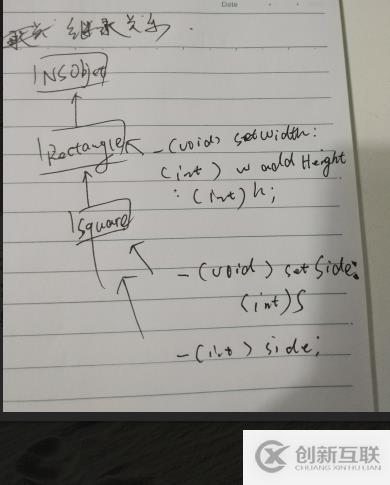 Date
继承关系.
NSObject
Rectangle
-(void) setWidth:
(int) w addHeight
: (int) h;
Square
-(void) setSide:
(int) S
-(int) side;
创新互联
CHUANG XIN HU LIAN